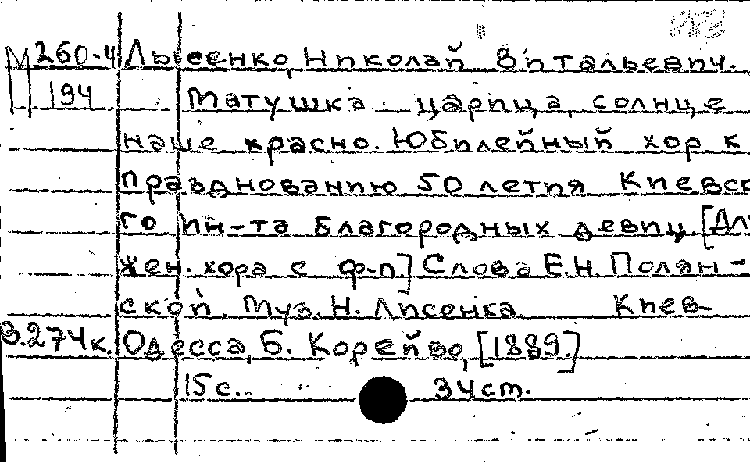 М 260-4 Лысенко, Николай Витальевич.
194 Матушка царица, солнце
наше красно. Юбилейный хор к
празднованию 50 летия Киевско
го ин-та благородных девиц. [Для
жен. хора с ф-п] Слова Е.Н. Полян-
ской. Муз. Н. Лисенка Киев-
В.274к. Одесса, Б. Корейво, [1889.]
15 с. 34 ст.